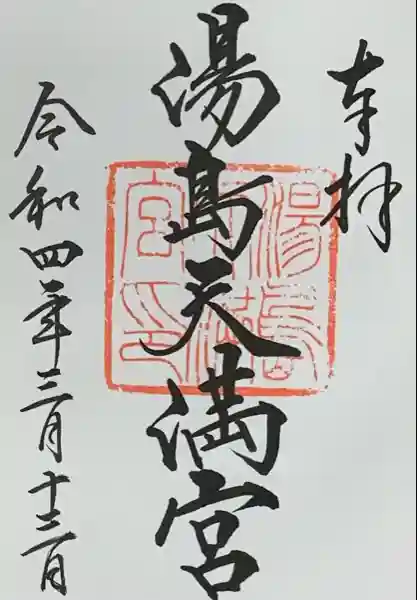 奉拝
湯島天満宮
湯島
天満
宮印
令和四年三月十三日